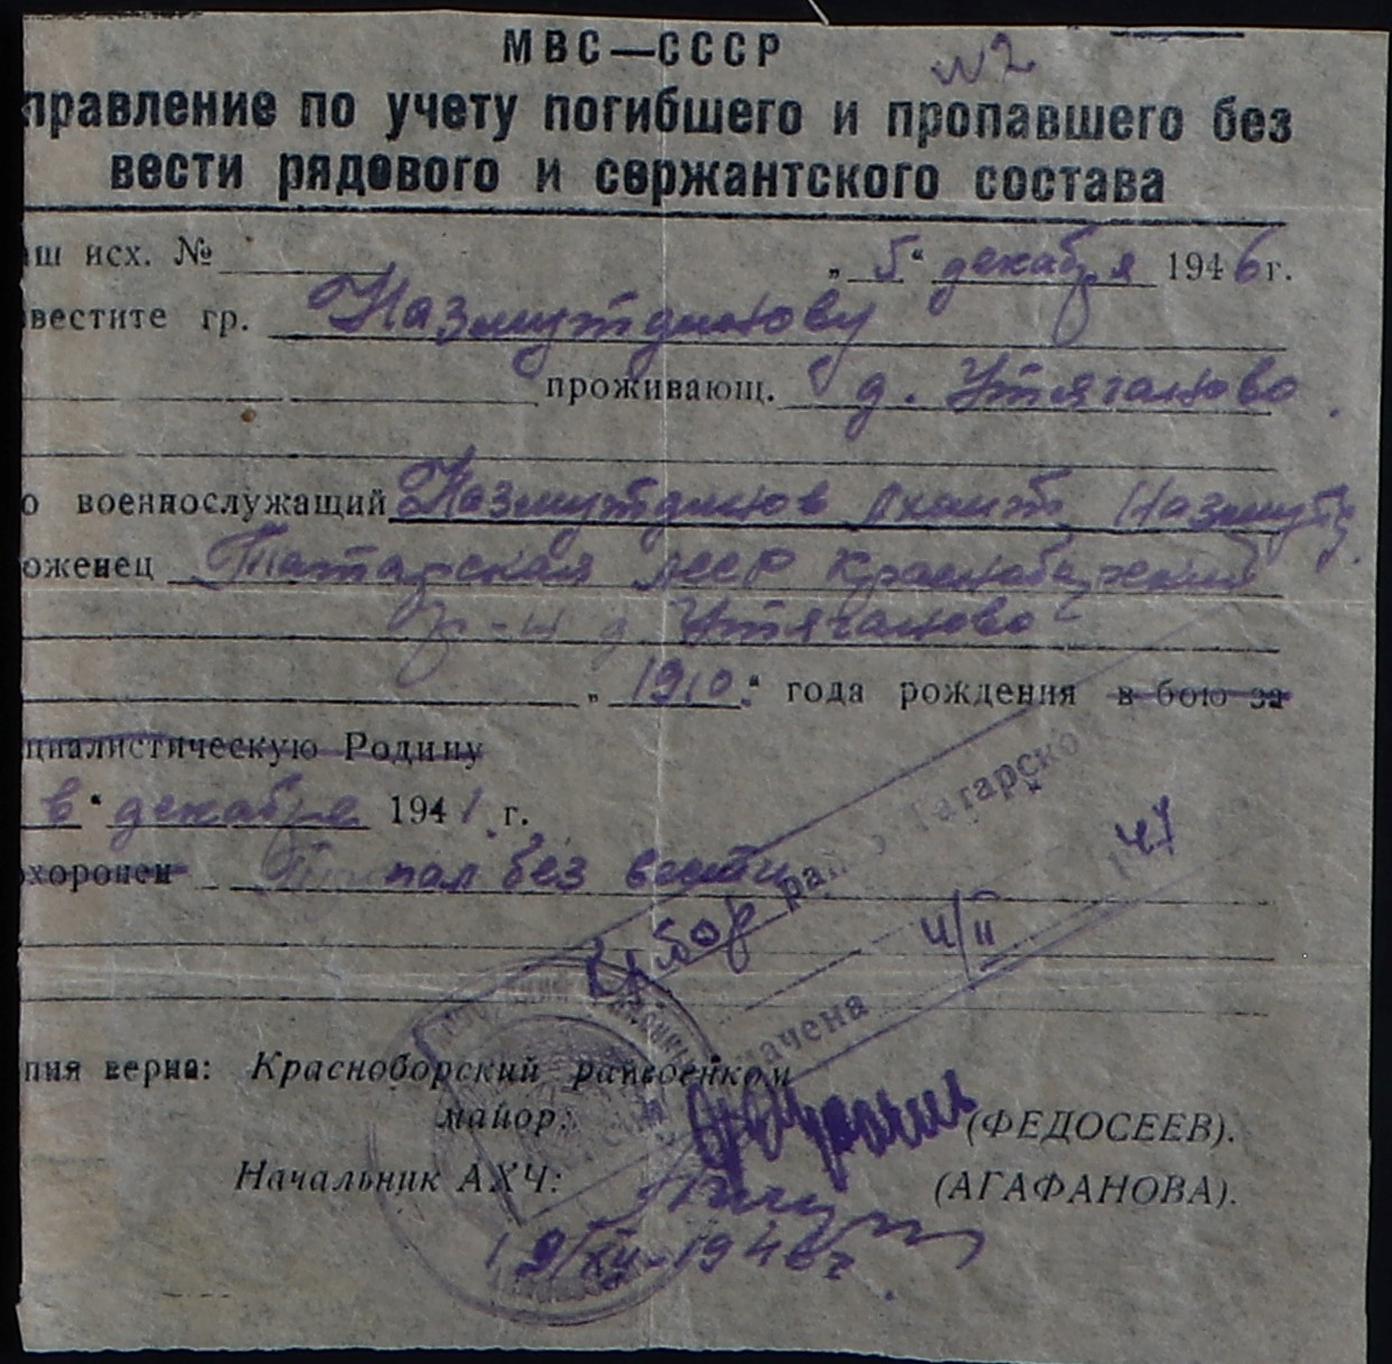 МВС—СССР
№2
правление по учету погибшего и пропавшего без
вести рядового и сержантского состава
аш исх. № „5“ декабря 1946 г.
вестите гр. Назмутдинову
проживающ. д. Утяганово.
о военнослужащий Назмутдинов Ахмат Назмутд.
оженец Татарская АССР Красноборский
р-н д. Утяганово
„1910“ года рождения в бою за
циалистическую Родину
в“ декабре 1941 г.
хоронен Пропал без вести
Кр.бор рай Татарско
41
4/II
ачена
пия верна: Красноборский райвоенком
майор: (ФЕДОСЕЕВ).
Начальник АХЧ: (АГАФАНОВА).
19/XII-1946г.